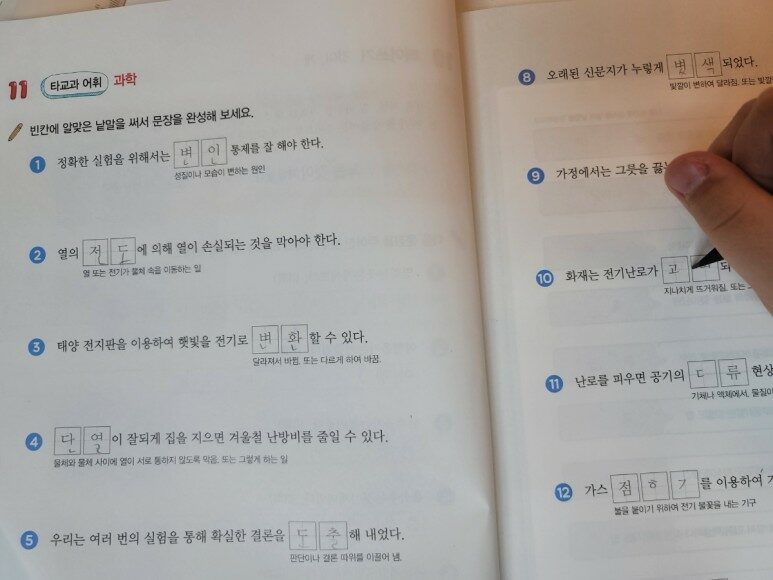 11 타교과 어휘 과학
빈칸에 알맞은 낱말을 써서 문장을 완성해 보세요.
1 정확한 실험을 위해서는 변 인 통제를 잘 해야 한다.
성질이나 모습이 변하는 원인
2 열의 전 도 에 의해 열이 손실되는 것을 막아야 한다.
열 또는 전기가 물체 속을 이동하는 일
3 태양 전지판을 이용하여 햇빛을 전기로 변 환 할 수 있다.
달라져서 바뀜. 또는 다르게 하여 바꿈.
4 단 열 이 잘되게 집을 지으면 겨울철 난방비를 줄일 수 있다.
물체와 물체 사이에 열이 서로 통하지 않도록 막음. 또는 그렇게 하는 일
5 우리는 여러 번의 실험을 통해 확실한 결론을 도 출 해 내었다.
판단이나 결론 따위를 이끌어 냄.
8 오래된 신문지가 누렇게 변 색 되었다.
빛깔이 변하여 달라짐. 또는 빛깔
9 가정에서는 그릇을
10 화재는 전기난로가
지나치게 뜨거워짐. 또는
11 난로를 피우면 공기의 ㄷ 류 현상
기체나 액체에서, 물질이
12 가스 점 ㅎ ㄱ 를 이용하여
불을 붙이기 위하여 전기 불꽃을 내는 기구